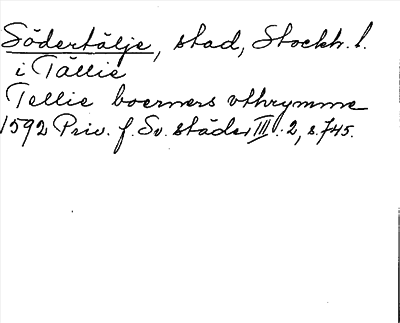 Södertälje, stad, Stockh. l.
i Tällie
Tellie boermers vthrymme
1592 Priv. f. Sv. städer III. 2, s. 745.